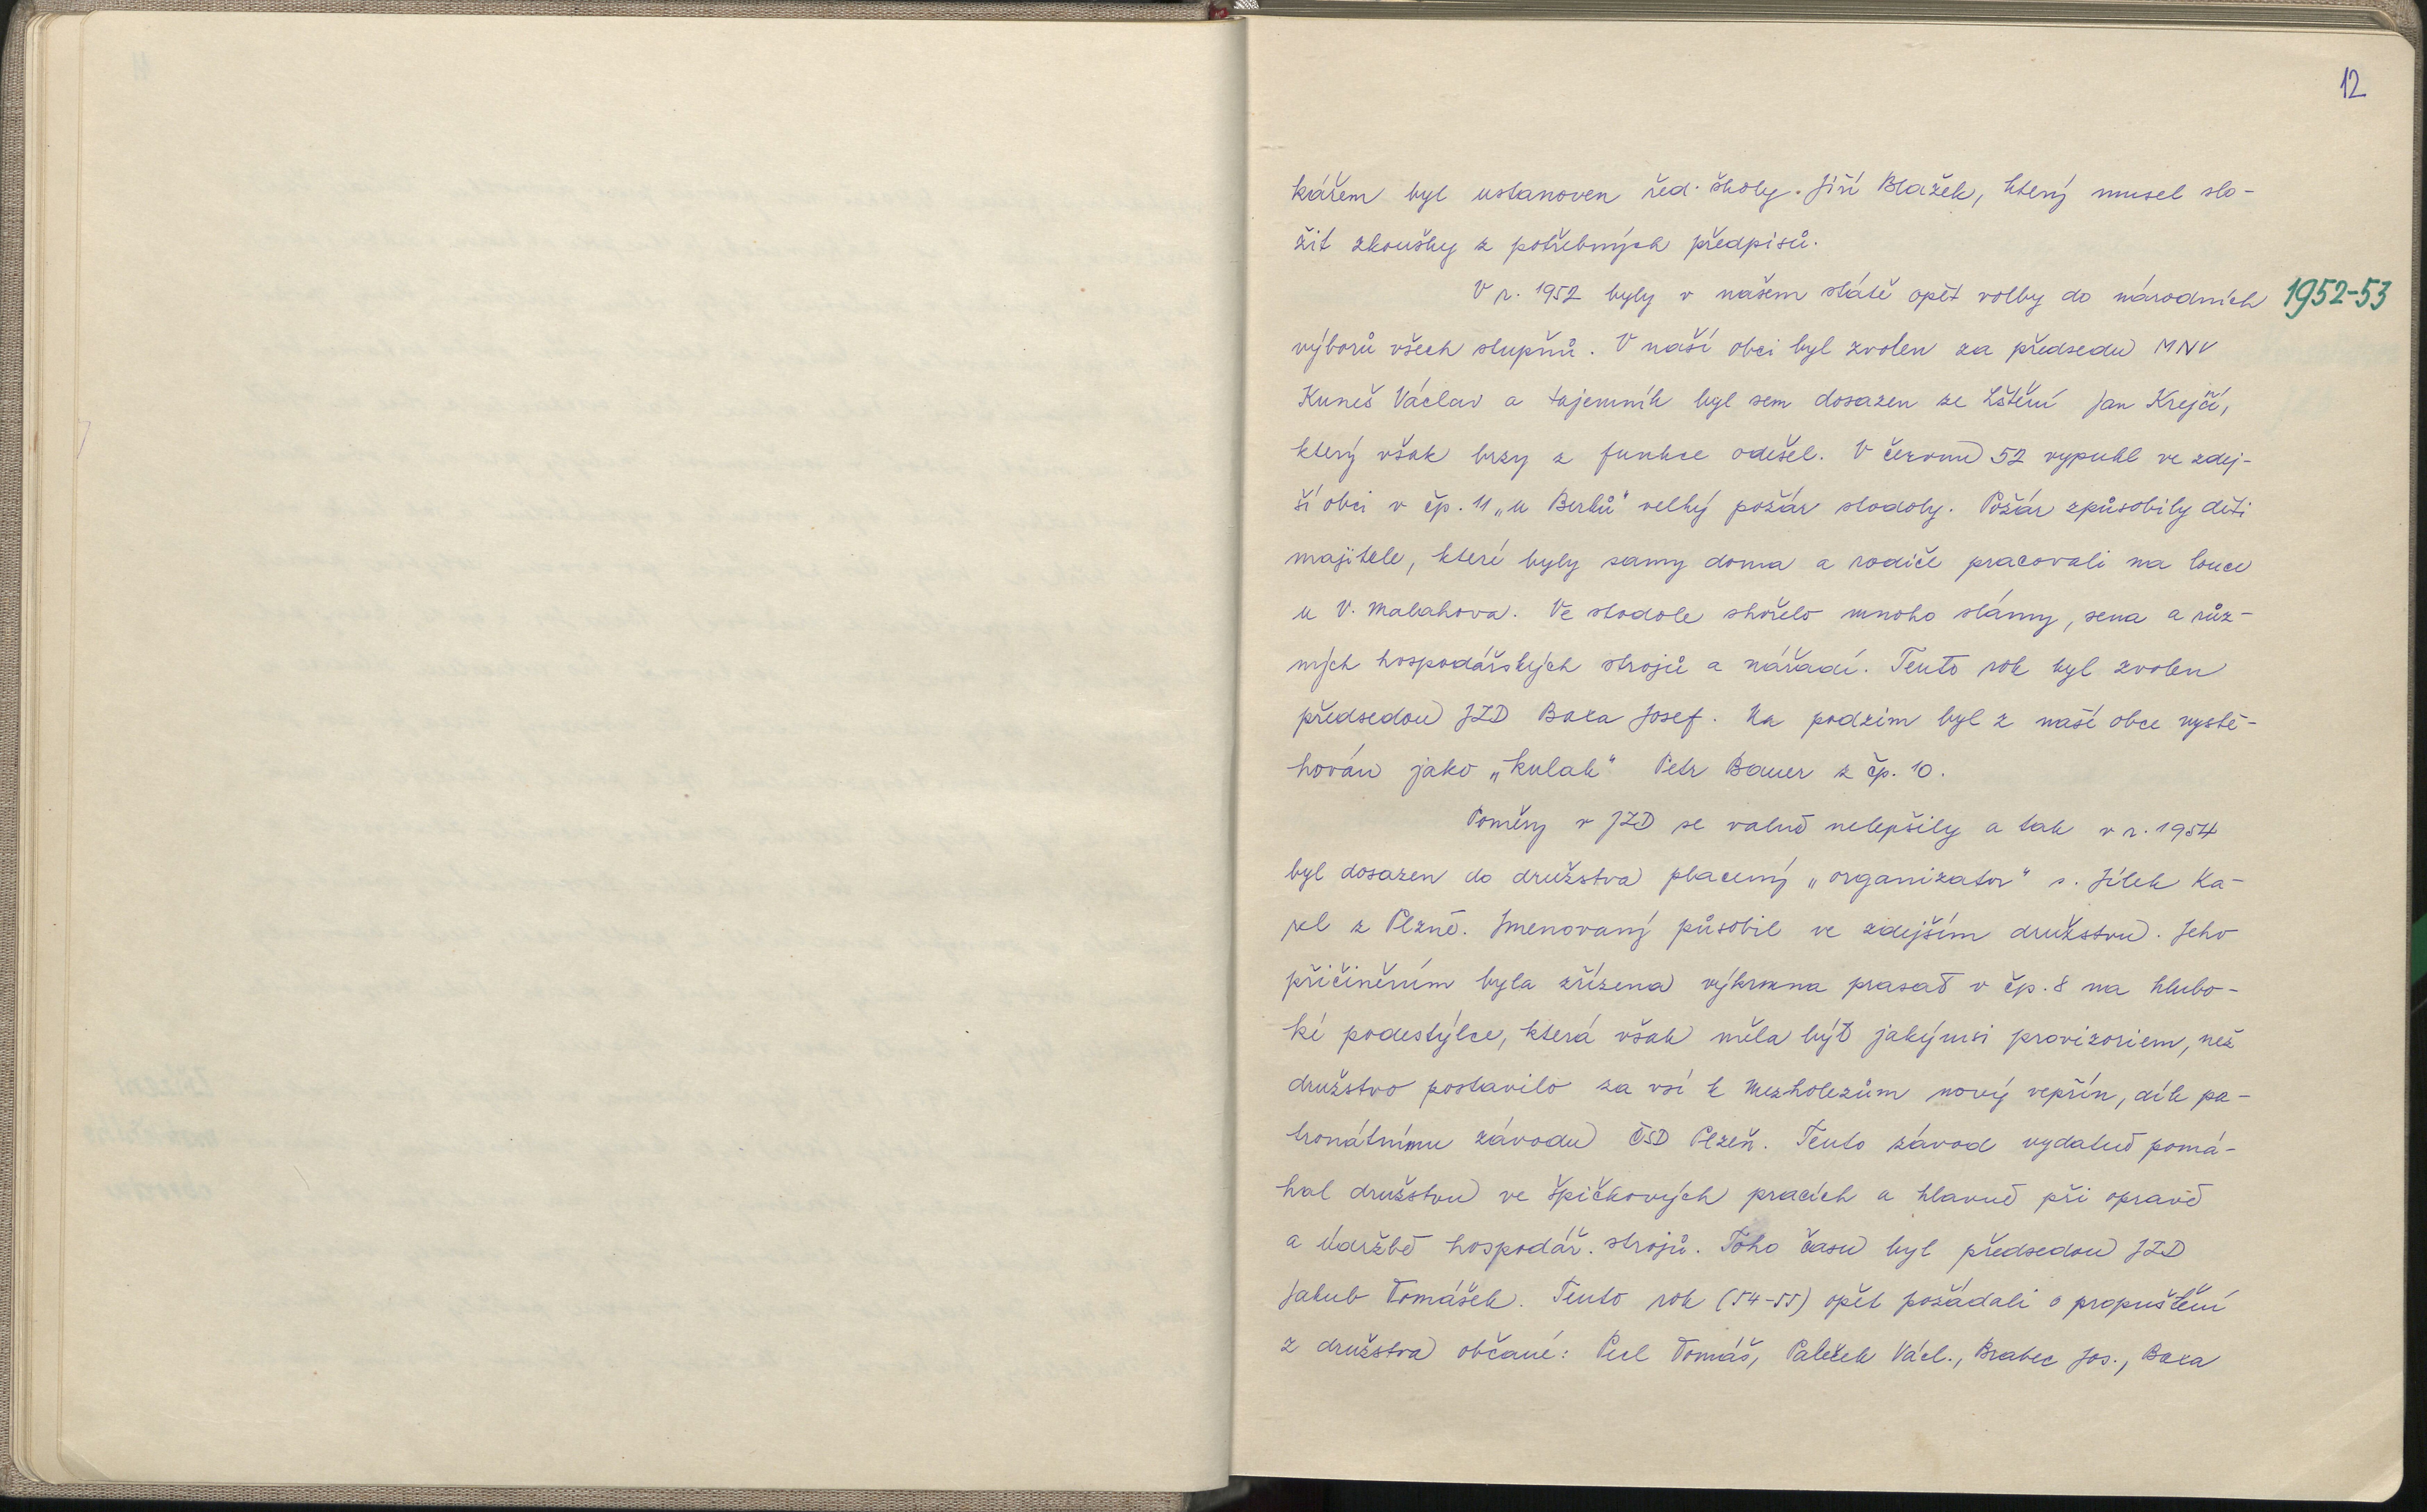 12
kářem byl ustanoven řed. školy. Jiří Blažek, který musel slo-
žit zkoušky z potřebných předpisů.
V r. 1952 byly v našem státě opět volby do národních
1952-53
výborů všech stupňů. V naší obci byl zvolen za předsedu MNV
Kuneš Václav a tajemník byl sem dosazen ze Lštění Jan Krejčí,
který však brzy z funkce odešel. V červnu 52 vypukl ve zdej-
ší obci v čp. 11 „u Berků" velký požár stodoly. Požár způsobily děti
majitele, které byly samy doma a rodiče pracovali na louce
u V. Malahova. Ve stodole shořelo mnoho slámy, sena a růz-
ných hospodářských strojů a nářadí. Tento rok byl zvolen
předsedou JZD Baxa Josef. Na podzim byl z naší obce vystě-
hován jako „kulak" Petr Bauer z čp. 10.
Poměry v JZD se valně nelepšily a tak v r. 1954
byl dosazen do družstva placený „organizator" s. Jílek Ka-
rel z Plzně. Jmenovaný působil ve zdejším družstvu. Jeho
přičiněním byla zřízena výkrmna prasat v čp. 8 na hlubo-
ké podestýlce, která však měla být jakýmsi provizoriem, než
družstvo postavilo za vsí k Mezholezům nový vepřín, dík pa-
tronátnímu závodu ČSD Plzeň. Tento závod vydatně pomá-
hal družstvu ve špičkových pracích a hlavně při opravě
a údržbě hospodář. strojů. Toho času byl předsedou JZD
Jakub Tomášek. Tento rok (54-55) opět požádali o propuštění
z družstva občané: Tomáš, Paleček Václ., Brabec Jos., Baxa